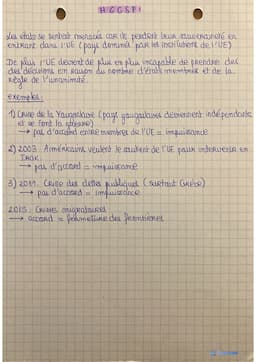 HGGSP
Les états se sentent menacés car ils perdent leur souveraineté en
entrant dans l'UE (pays dominés par les institutions de l'UE)
De plus l'UE devient de plus en plus incapable de prendre des
des décisions en raison du nombre d'états membres et de la
règle de l'unanimité.
Exemples:
1) Crise de la Yougoslavie (pays yougoslaves deviennent indépendants
et se font la guerre)
→ pas d'accord entre membres de l'UE = impuissance
2) 2003: Américains veulent le soutient de l'UE pour intervenir en
IRAK.
→ pas d'accord = impuissance
3) 2011: Crise des dettes publiques (surtout Grèce)
→ pas d'accord = impuissance
2015: Crises migratoires
→ accord = fermeture des frontières